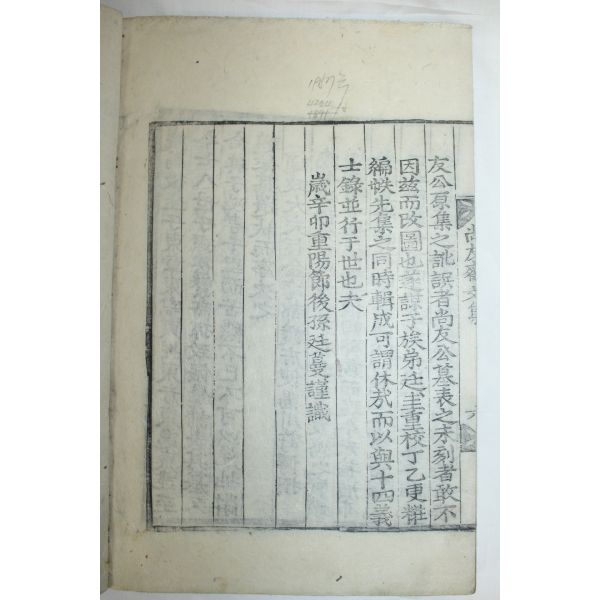 尚友齋文集
六
友公原集之訛誤者尚友公墓表之未刻者敢不
因茲而改圖也遂謀于族弟廷圭重校丁乙更粧
編帙先集之同時輯成可謂休哉而以與十四義
士錄並行于世也夫
歲辛卯重陽節後孫廷蔓謹識